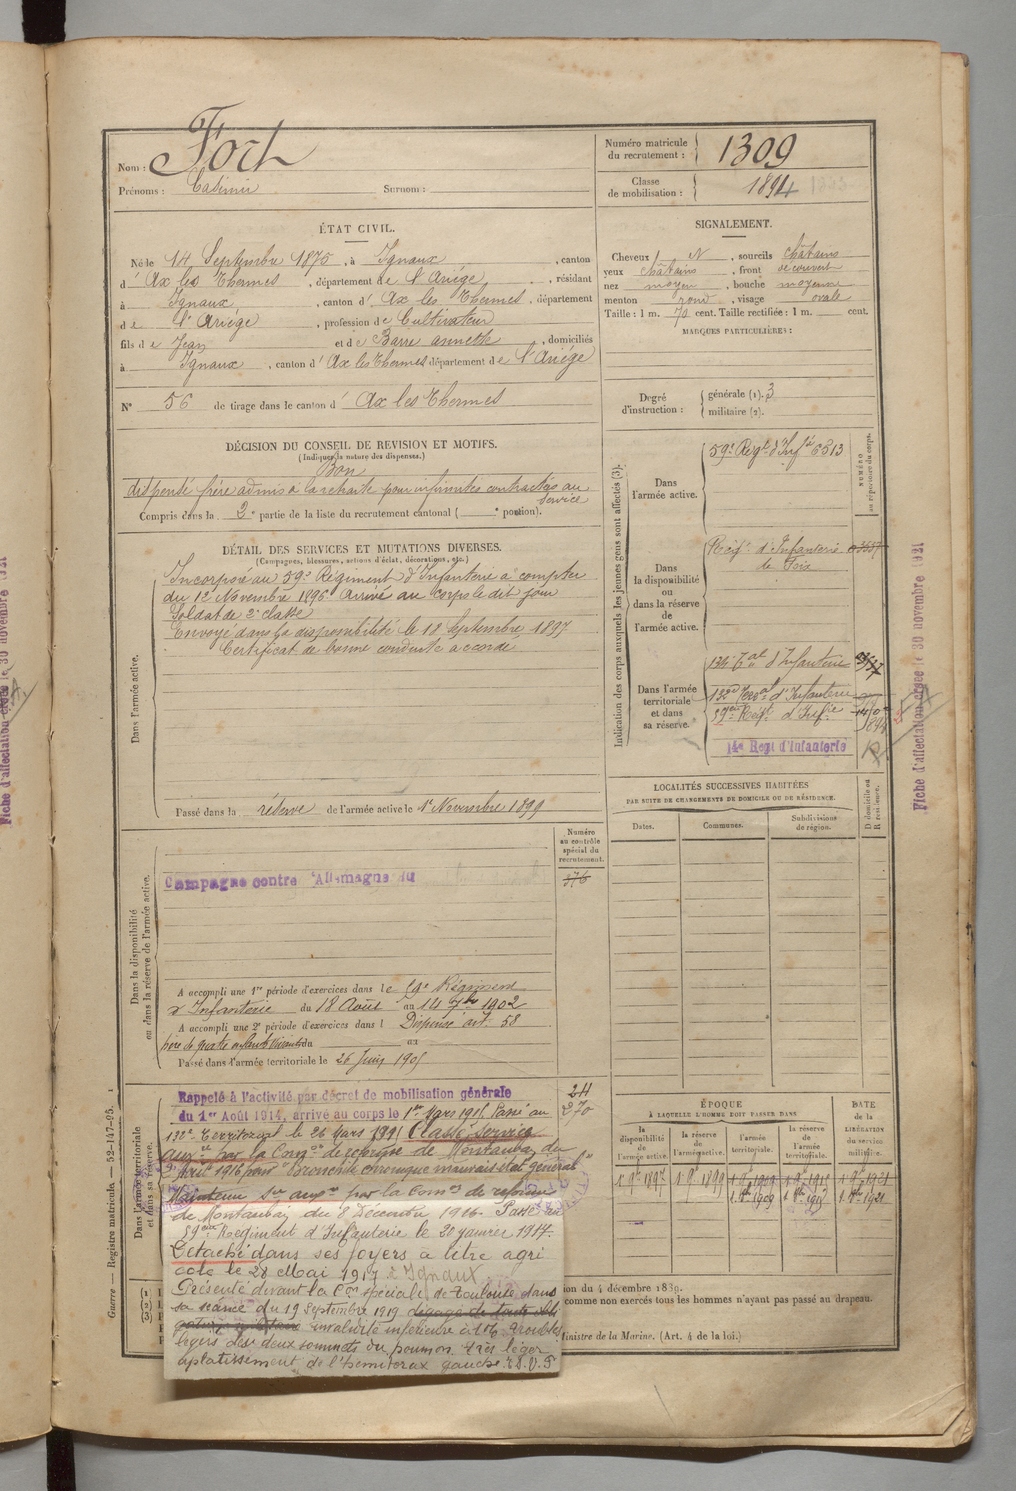 Nom : Fort
Prénoms : Casimir Surnom :
Numéro matricule du recrutement : 1309
Classe de mobilisation : 1894
ÉTAT CIVIL.
Né le 14 Septembre 1875, à Ignaux, canton
d' Ax les Thermes, département de l'Ariège, résidant
à Ignaux, canton d' Ax les Thermes, département
de l'Ariège, profession de Cultivateur
fils de Jean et de Barre annette, domiciliés
à Ignaux, canton d' Ax les Thermes département de l'Ariège
N° 56 de tirage dans le canton d' Ax les Thermes
SIGNALEMENT.
Cheveux N, sourcils châtains
yeux châtains, front découvert
nez moyen, bouche moyenne
menton rond, visage ovale
Taille : 1 m. 70 cent. Taille rectifiée : 1 m. cent.
MARQUES PARTICULIÈRES :
Degré d'instruction : générale (1). 3
militaire (2).
DÉCISION DU CONSEIL DE REVISION ET MOTIFS.
(Indiquer la nature des dispenses.)
Bon
dispensé frère admis à la retraite pour infirmités contractées au
service
Compris dans la 2e partie de la liste du recrutement cantonal ( e portion).
DÉTAIL DES SERVICES ET MUTATIONS DIVERSES.
(Campagnes, blessures, actions d'éclat, décorations, etc.)
Dans l'armée active.
Incorporé au 59e Régiment d'Infanterie à compter
du 12 Novembre 1896 arrivé au corps le dit jour
Soldat de 2e classe
Envoyé dans la disponibilité le 18 Septembre 1897
Certificat de bonne conduite accordé
Passé dans la réserve de l'armée active le 1er Novembre 1899
Indication des corps auxquels les jeunes gens sont affectés (3).
NUMÉRO au répertoire du corps.
Dans l'armée active.
59e Régt d'Infie 6313
Dans la disponibilité ou dans la réserve de l'armée active.
Régt d'Infanterie
de Foix
Dans l'armée territoriale et dans sa réserve.
d'Infanterie
132e Terral d'Infanterie
59eme Régt d'Infie
14e Regt d'Infanterie
LOCALITÉS SUCCESSIVES HABITÉES
PAR SUITE DE CHANGEMENTS DE DOMICILE OU DE RÉSIDENCE.
Dates. Communes. Subdivisions de région. D domicile ou R résidence.
Numéro au contrôle spécial du recrutement.
376
Dans la disponibilité ou dans la réserve de l'armée active.
Campagne contre l'Allemagne du
A accompli une 1re période d'exercices dans le 59e Régiment
d'Infanterie du 18 Août au 14 7bre 1902
A accompli une 2e période d'exercices dans l Dispensé art. 58
père de quatre enfants vivants du au
Passé dans l'armée territoriale le 26 Juin 1905
Dans l'armée territoriale et dans sa réserve.
211
270
Rappelé à l'activité par décret de mobilisation générale
du 1er Août 1914, arrivé au corps le 1er Mars 1915 Passé au
132e Territorial le 26 Mars 1915 Classé service
auxre par la Comon de réforme de Montauban du
Avril 1916 pour "Bronchite chronique mauvais état général"
Maintenu Sce auxre par la Comon de réforme
de Montauban du 8 Décembre 1916. Passé au
59eme Régiment d'Infanterie le 20 janvier 1917.
Détaché dans ses foyers à titre agri
cole le 28 Mai 1917 à Ignaux
Présenté devant la Con spéciale de Toulouse dans
sa séance du 19 Septembre 1919 dégagé de toute obli
gation militaire invalidité inférieure à 10% troubles
légers des deux sommets du poumon très léger
aplatissement de l'hémithorax gauche
ÉPOQUE
À LAQUELLE L'HOMME DOIT PASSER DANS
la disponibilité de l'armée active. la réserve de l'armée active. l'armée territoriale. la réserve de l'armée territoriale.
DATE de la LIBÉRATION du service militaire.
1 9bre 1897 1 9bre 1899 1 9bre 1909 1 9bre 1915 1 9bre 1921
ion du 4 décembre 1839.
comme non exercés tous les hommes n'ayant pas passé au drapeau.
Ministre de la Marine. (Art. 4 de la loi.)
Guerre — Registre matricule. — 52-147-95.
Fiche d'affectation créée le 30 novembre 1921
Fiche d'affectation créée le 30 novembre 1921